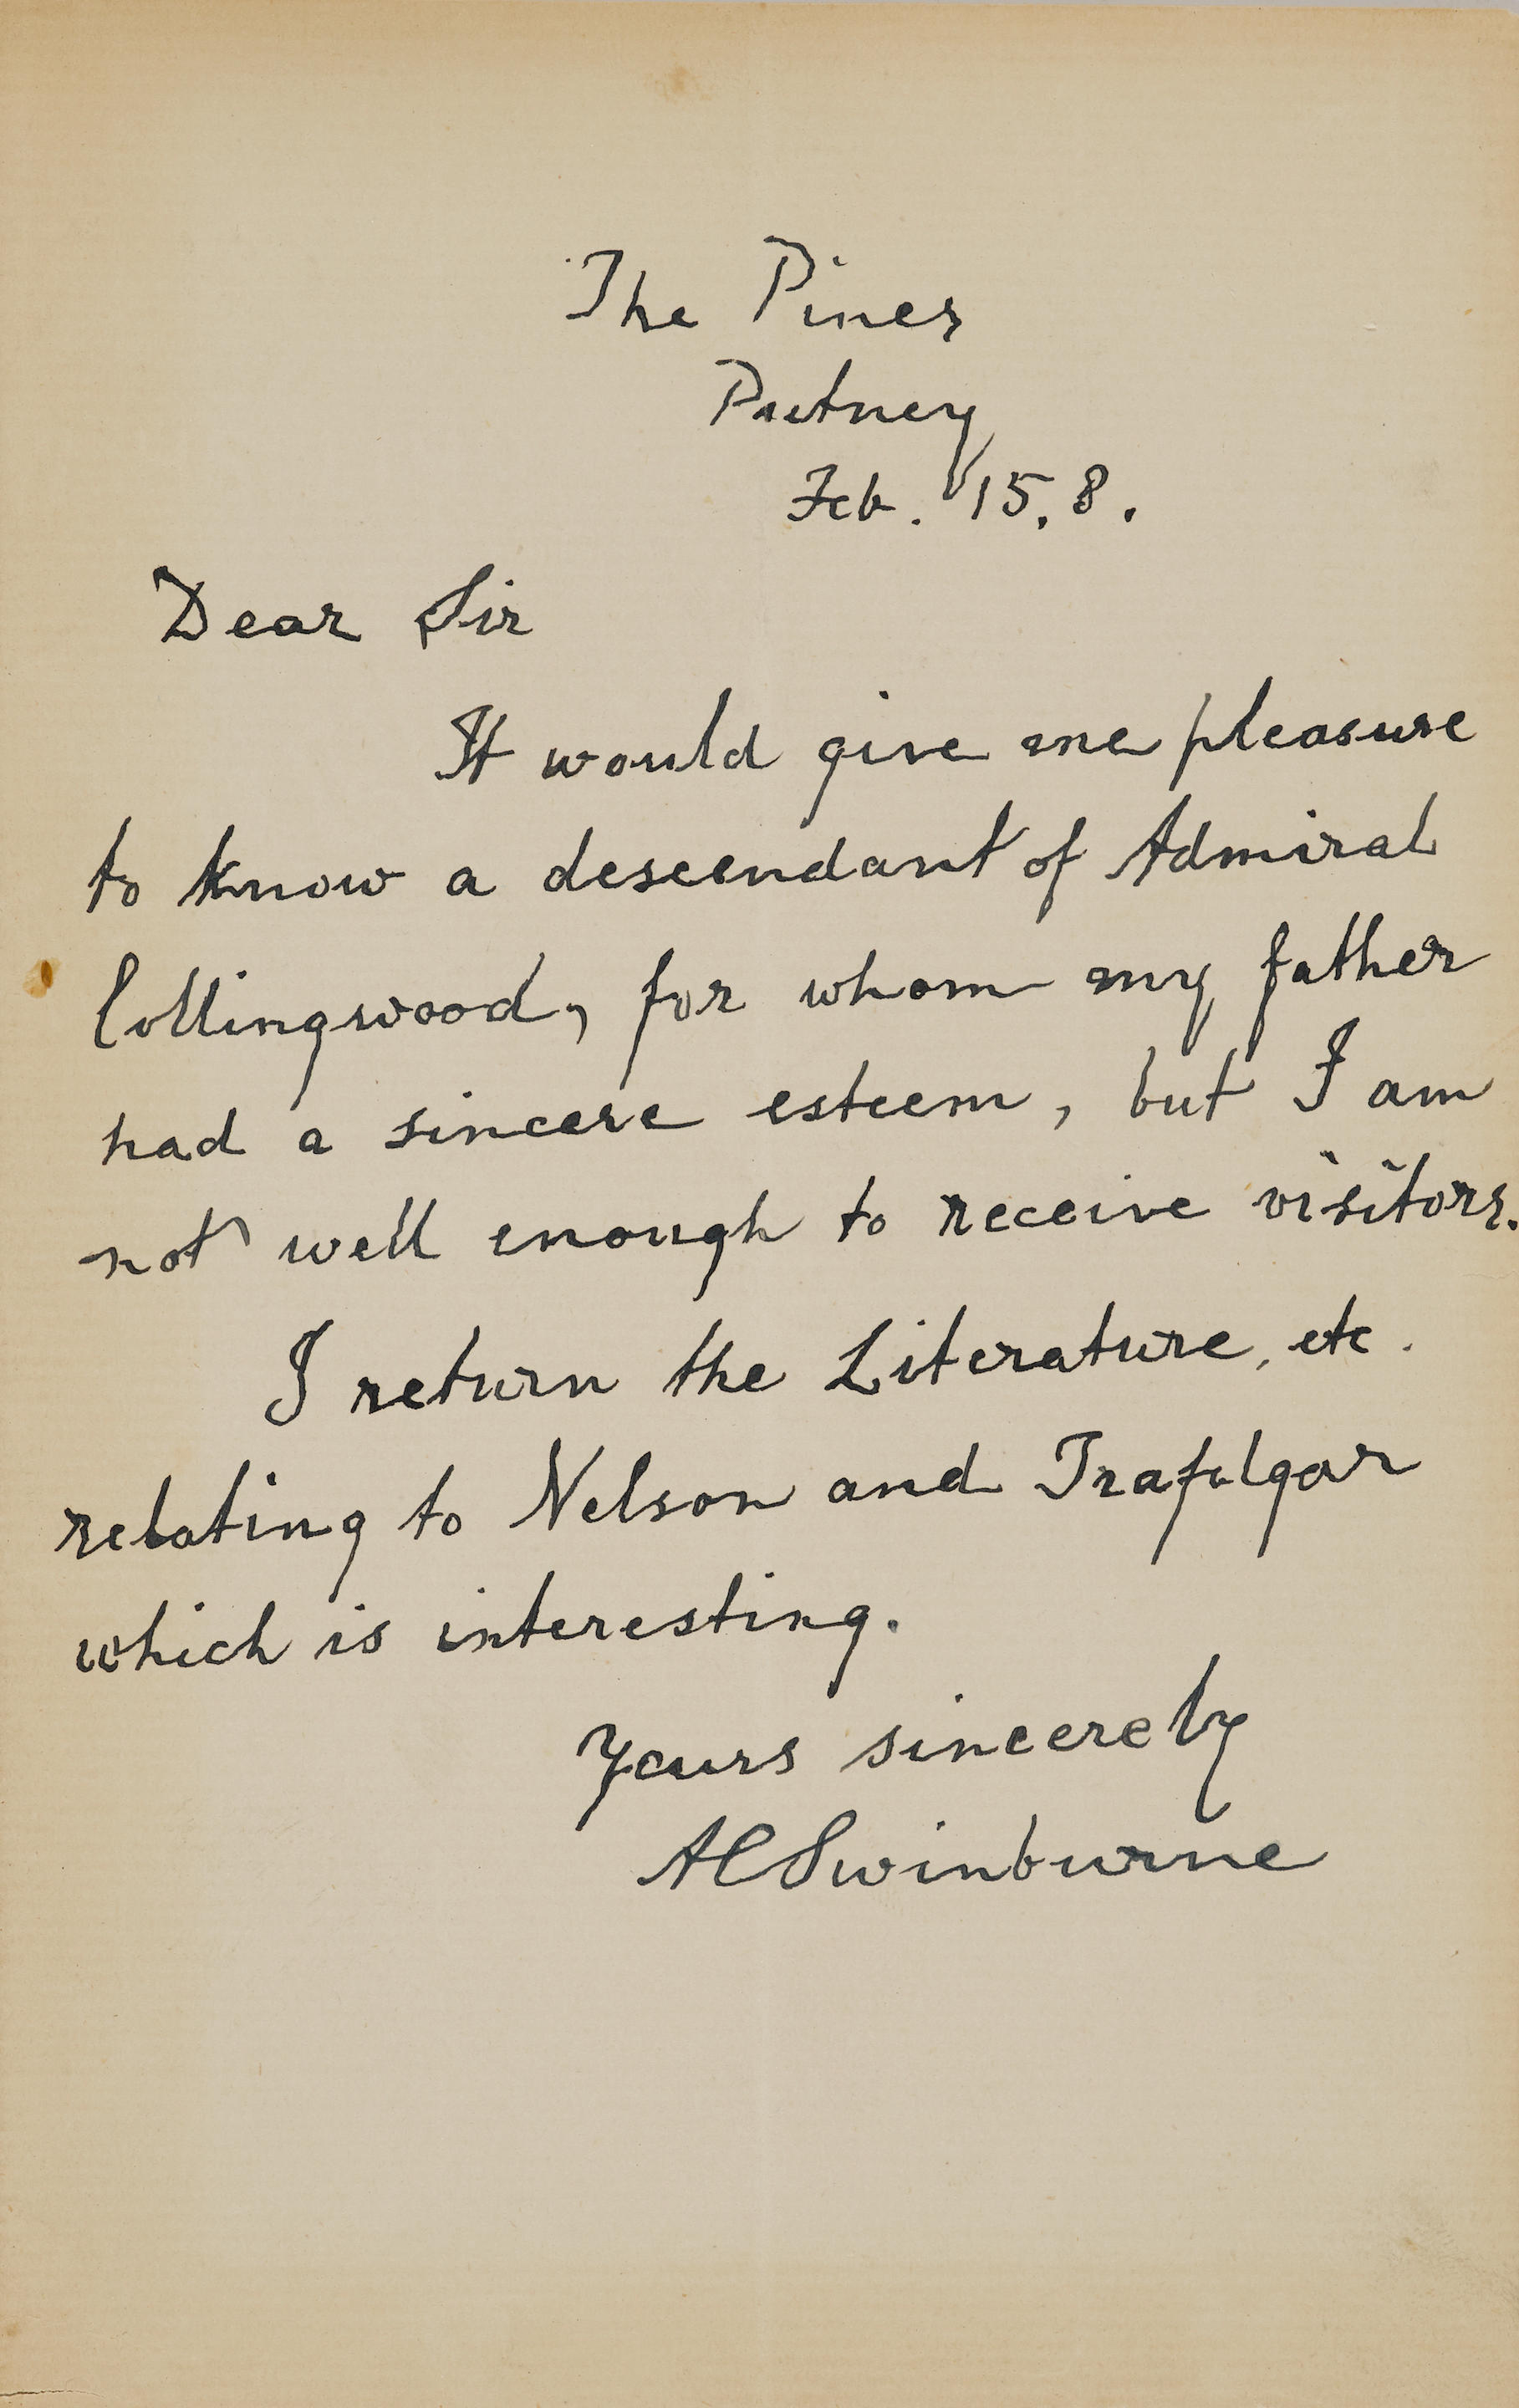 The Pines
Putney
Feb. 15. 8.
Dear Sir
It would give me pleasure
to know a descendant of Admiral
Collingwood, for whom my father
had a sincere esteem, but I am
not well enough to receive visitors.
I return the Literature, etc.
relating to Nelson and Trafalgar
which is interesting.
Yours sincerely
ACSwinburne